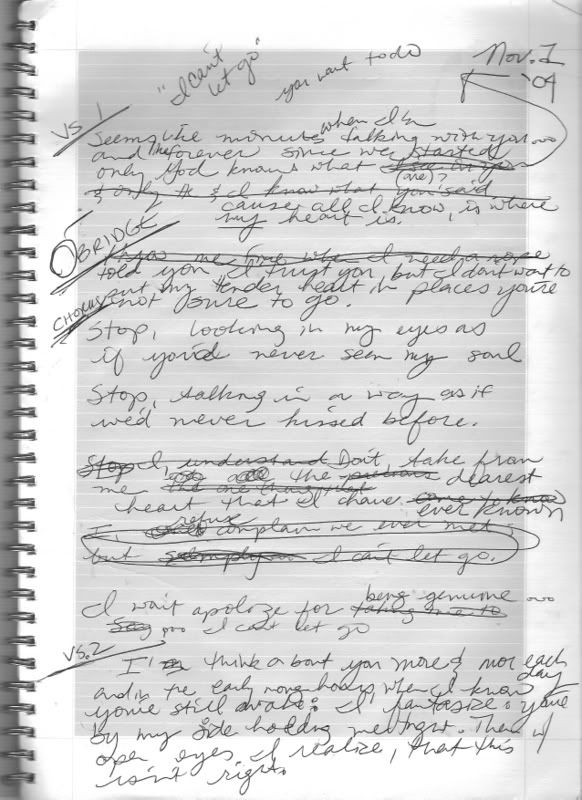 "I can't let go"
you want to do
Nov. 1 '04
VS. 1
Seems like minutes when I'm talking with you...
and like forever since we started
only God knows what I see in you
& only & I know what (are)? you said
cause all I know, is where
my heart is.
BRIDGE
me time when I need a nope
told you I trust you, but I don't want to
put my tender heart in places you're
not sure to go.
CHORUS
Stop, looking in my eyes as
if you'd never seen my soul
Stop, talking in a way as if
we'd never kissed before.
Stop I, understand Don't take from
me the one thing that the precious dearest
heart that I have come to know ever known
I, refuse complain we ever met;
but simply I can't let go.
I wait apoloze for taking me to being genuine...
Say I can't let go
VS. 2
I think about you more & more each day
and in the early morng hours, when I know
you're still awake: I fantasize: you're
by my side holding me tight. Then w/
open eyes I realize, that this
isn't right.